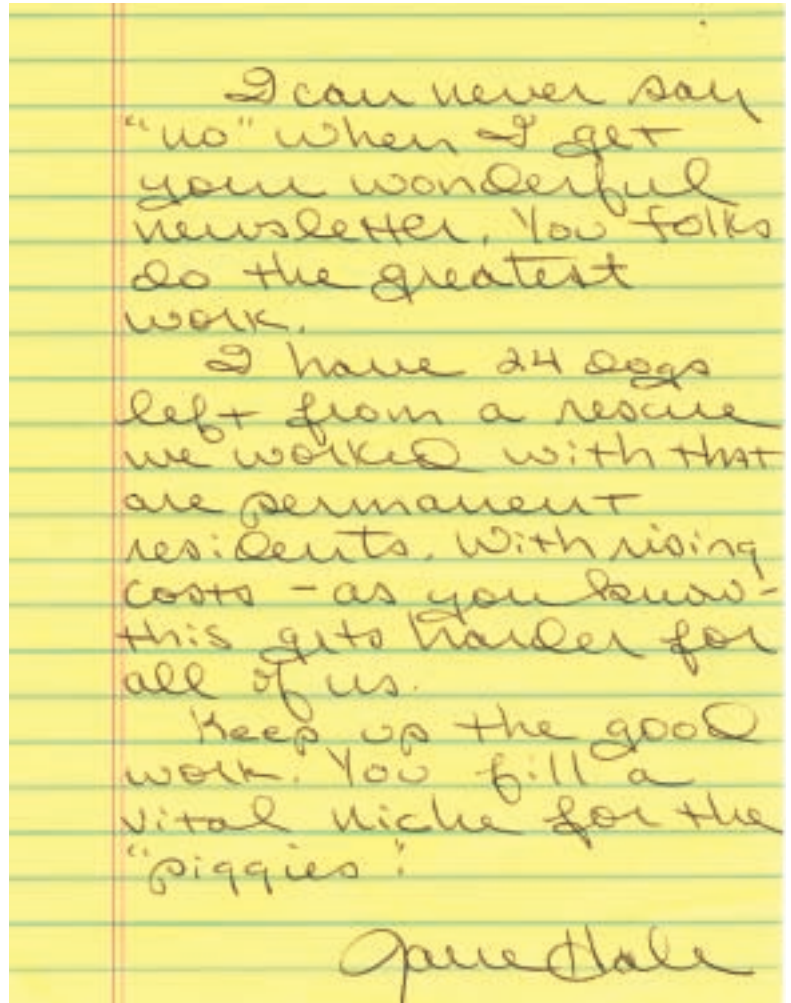 I can never say
"no" when I get
your wonderful
newsletter. You folks
do the greatest
work.
I have 24 dogs
left from a rescue
we worked with that
are permanent
residents. With rising
costs - as you know -
this gets harder for
all of us.
Keep up the good
work. You fill a
vital niche for the
"piggies".
Jane Hale